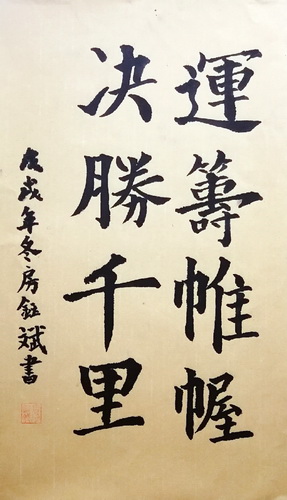 運籌帷幄
决勝千里
戊戌年冬房鈺斌書